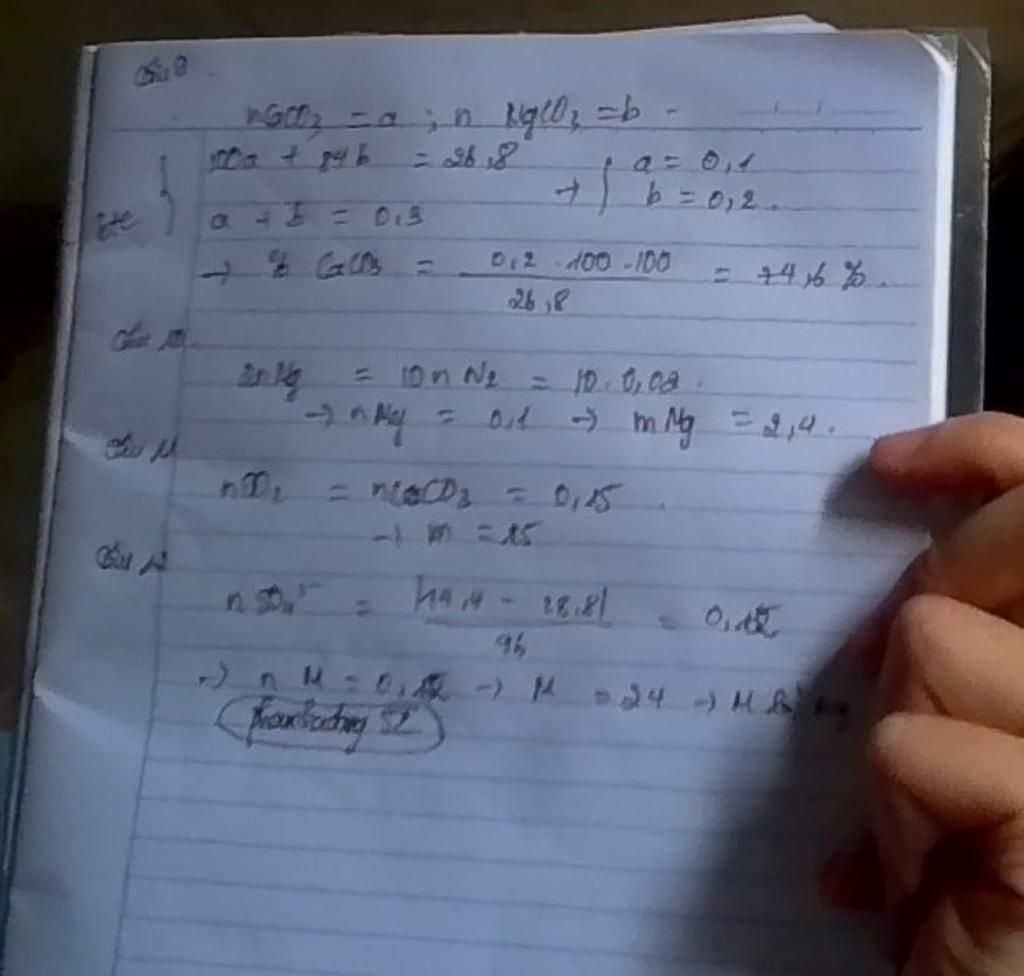 Câu 9.
nCaCO3 = a ; n MgCO3 = b.
100a + 84b = 26,8 → a = 0,1
a + b = 0,3 b = 0,2.
→ % CaCO3 = 0,2 . 100 . 100 / 26,8 = 74,6 %.
Câu 10.
2nMg = 10nN2 = 10. 0,02.
→ nMg = 0,1 → mMg = 2,4.
Câu 11
nCO2 = nCaCO3 = 0,15.
→ m = 15
Câu 12
n SO4²⁻ = 14,4 - 28,8 / 96 = 0,15
→ n M = 0,15 → M = 24 → M là Mg